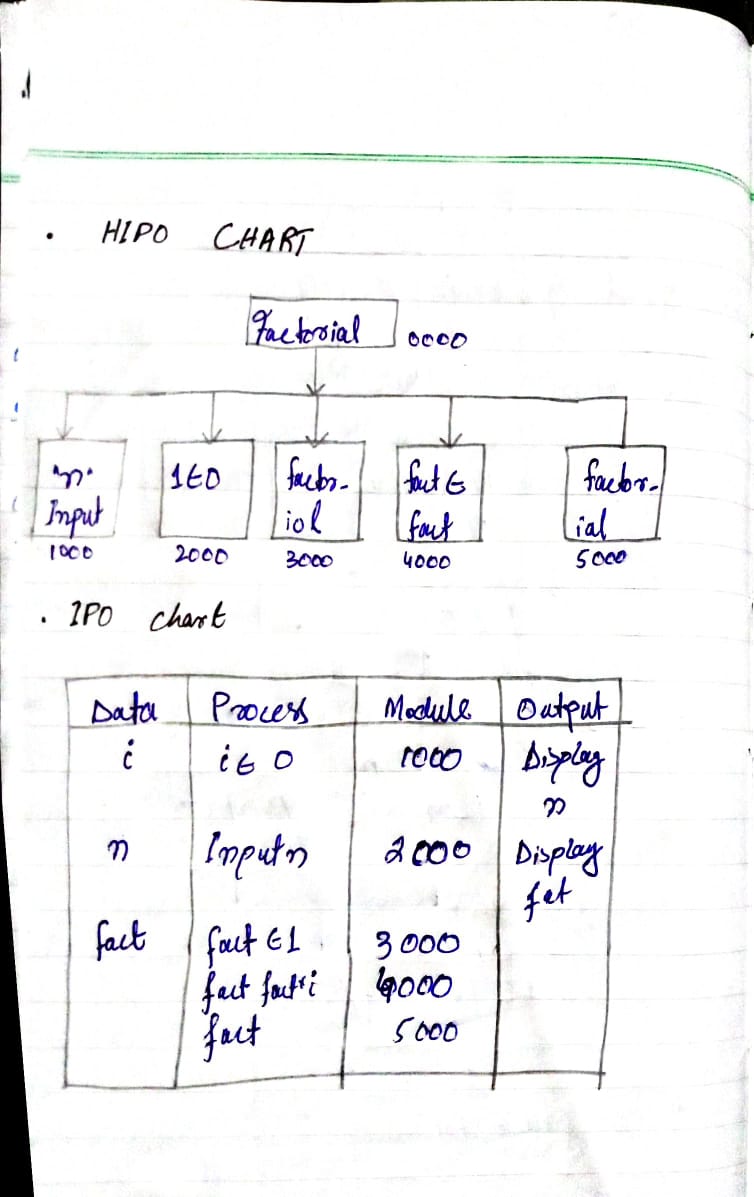 . HIPO CHART
Factorial 0000
"n" Input 1000
1€0 2000
factor-iol 3000
fact € fact 4000
factor-ial 5000
. IPO chart
Data Process Module Output
i i € 0 1000 Display n
n Input n 2000 Display fet
fact fact €1 3000
fact fact*i 4000
fact 5000